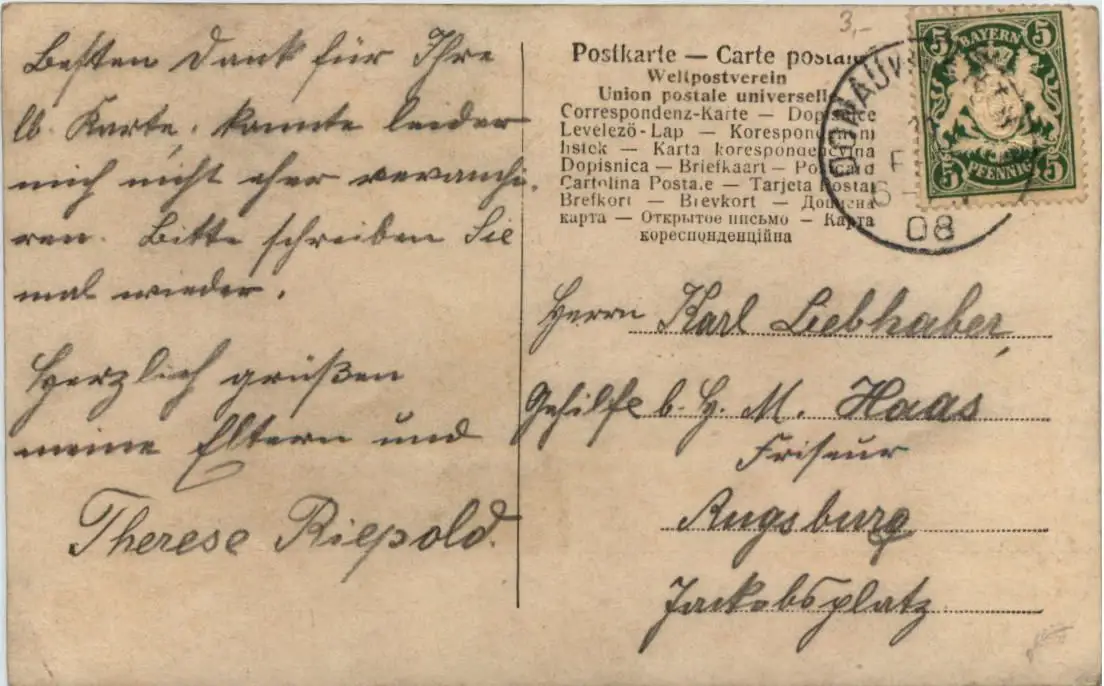 Besten Dank für Ihre
lb. Karte, konnte leider
mich nicht eher revanchi-
ren. Bitte schreiben Sie
mal wieder.
Herzlich grüßen
meine Eltern und
Therese Riepold.
3,-
Postkarte — Carte postale
Weltpostverein
Union postale universelle
Correspondenz-Karte — Dopisnice
Levelező-Lap — Korespondenční
lístek — Karta korespondencyjna
Dopisnica — Briefkaart — Postcard
Cartolina Postale — Tarjeta Postal
Brefkort — Brevkort — Дописна
карта — Открытое письмо — Карта
кореспонденційна
BAYERN
5 5
5 5
PFENNIG
DONAUW
08
Herrn Karl Liebhaber,
Gehilfe b. H. M. Haas
Friseur
Augsburg
Jackobsplatz